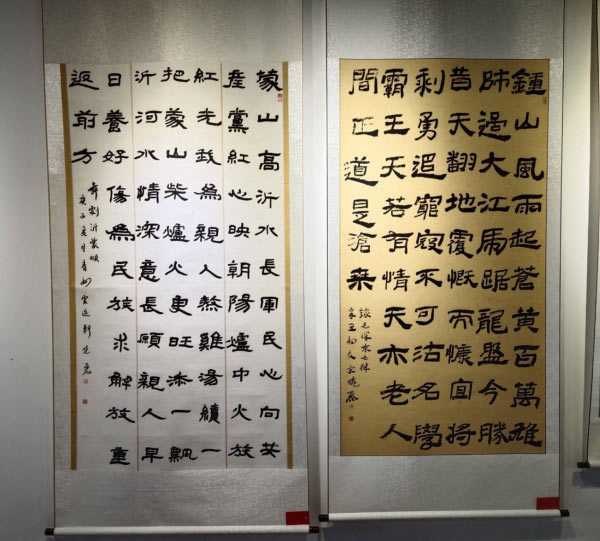 鍾山風雨起蒼黃百萬雄
師過大江虎踞龍盤今勝
昔天翻地覆慨而慷宜將
剩勇追窮寇不可沽名學
霸王天若有情天亦老人
間正道是滄桒
蒙山高沂水長軍民心向共
產黨紅心映朝陽爐中火放
紅光我為親人熬雞湯續一
把蒙山柴爐火更旺添一瓢
沂河水情深意長願親人早
日養好傷為民族求解放重
返前方
舞劇沂蒙頌
庚子夏月青州雲